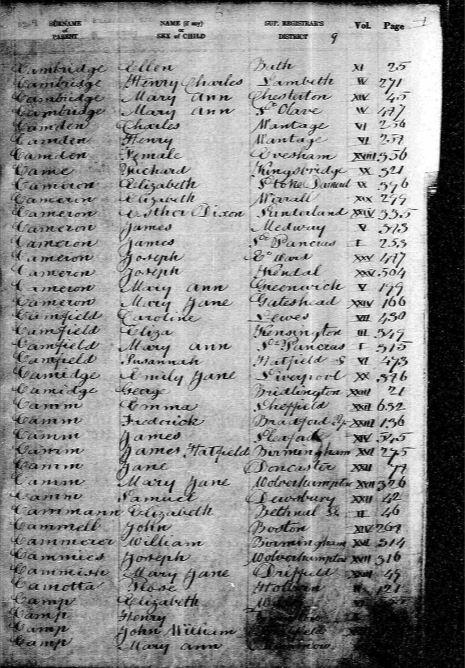 SURNAME of PARENT NAME (if any) or SEX OF CHILD SUP. REGISTRAR'S DISTRICT Vol. Page
9
Cambridge Ellen Bath XI 25
Cambridge Henry Charles Lambeth IV 271
Cambridge Mary Ann Chesterton XIV 45
Cambridge Mary Ann St Olave IV 417
Camden Charles Wantage VI 256
Camden Henry Wantage VI 257
Camdon Female Evesham XVIII 356
Came Richard Kingsbridge IX 321
Cameron Elizabeth Stoke Damerel IX 396
Cameron Elizabeth Wirrall XIX 279
Cameron Esther Dixon Sunderland XXIV 335
Cameron James Medway V 373
Cameron James St Pancras I 233
Cameron Joseph XXV 417
Cameron Joseph Kendal XXV 504
Cameron Mary Ann Greenwich V 179
Cameron Mary Jane Gateshead XXIV 166
Camfield Caroline Lewes VII 430
Camfield Eliza Kensington III 349
Camfield Mary Ann St Pancras I 315
Camfield Susannah Hatfield VI 493
Camidge Emily Jane Liverpool XX 376
Camidge George Bridlington XXIII 21
Camm Emma Sheffield XXII 632
Camm Frederick Bradford XXIII 136
Camm James XIV
Camm James Hatfield Birmingham XVI 275
Camm Jane Doncaster XXII 47
Camm Mary Jane Wolverhampton XVII 326
Camm Samuel Dewsbury XXII 42
Cammann Elizabeth Bethnal Gr II 46
Cammell John Boston XIV 269
Cammerer William Birmingham XVI 314
Cammies Joseph Wolverhampton XVII 316
Cammish Mary Jane Driffield XXIII 49
Camotta Rose Holborn II 121
Camp Elizabeth
Camp Henry
Camp John William
Camp Mary Ann